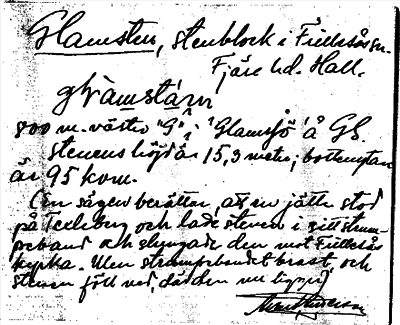 Glamsten, stenblock i Fjällåssn.
Fjäre hd. Hall.
glàmstᾱrn,
800 m. väster "G" i "Glamsjö" å GS.
Stenens höjd är 15,3 meter; bottenytan
är 95 kvm.
En sägen berättar, att en jätte stod
på Texleberg och lade stenen i sitt strum-
peband och slungade den mot Fjällås
kyrka. Men strumpebandet brast, och
stenen föll ned, där den nu ligger.